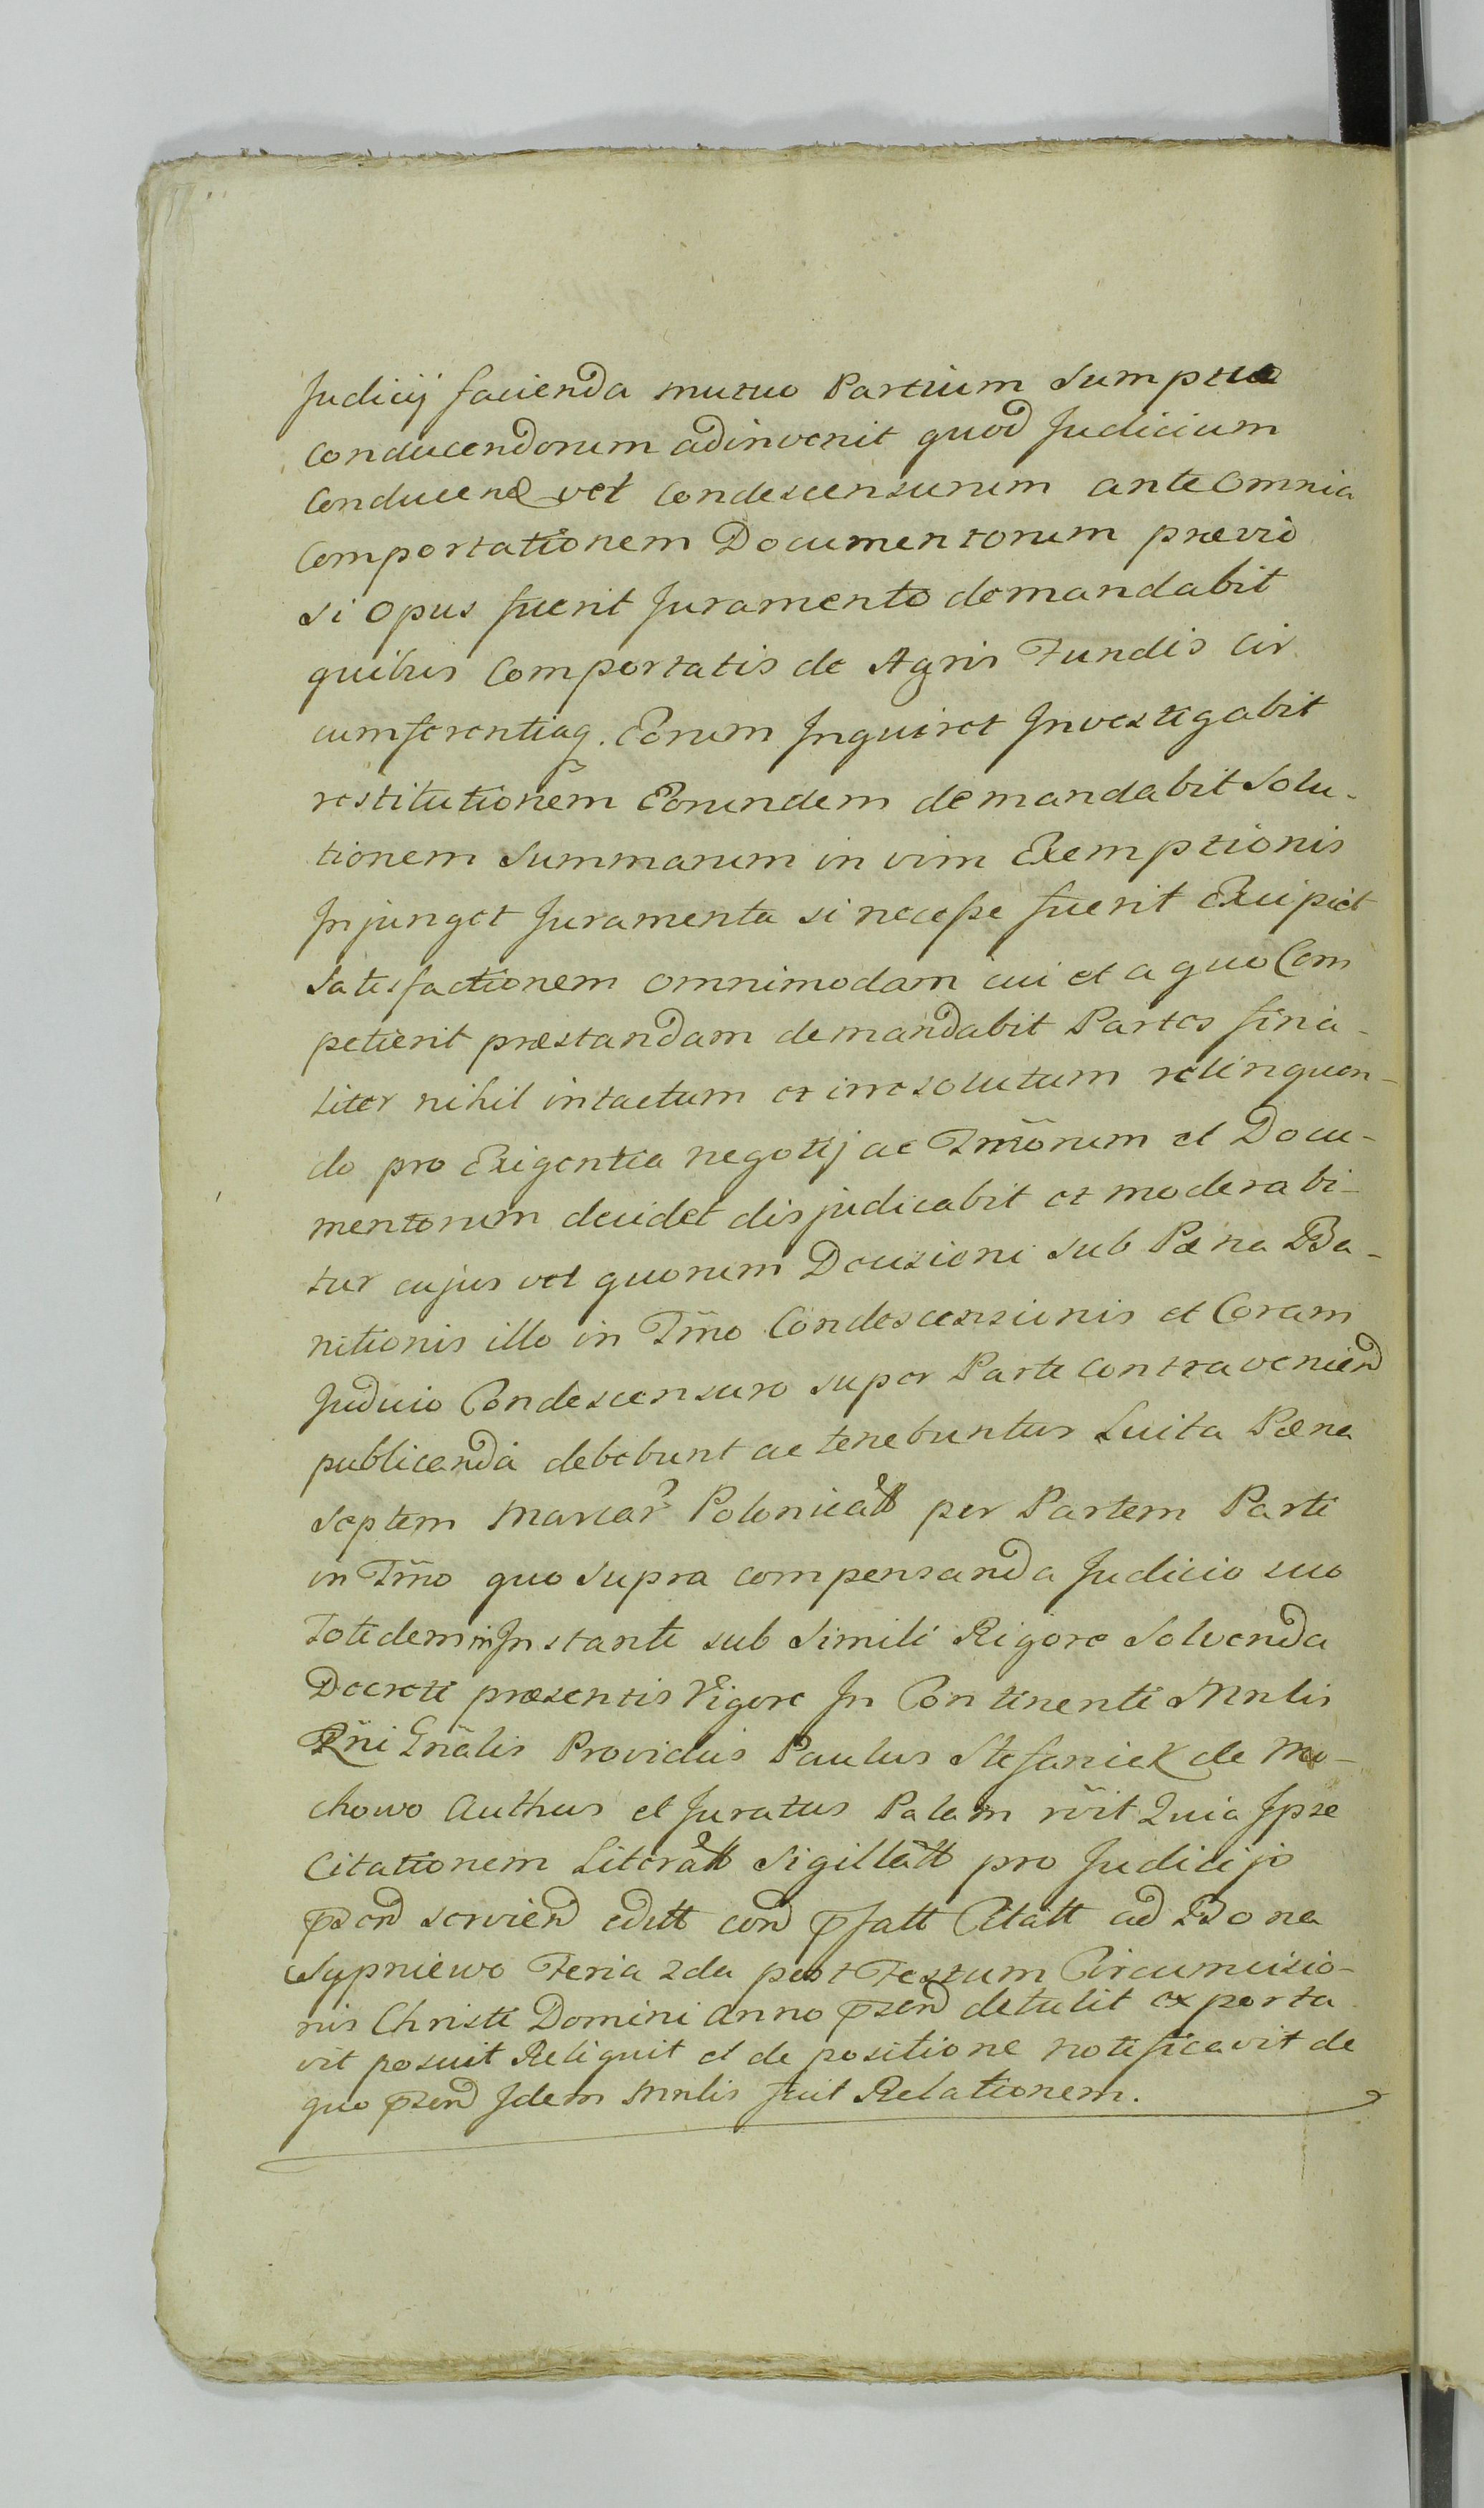 Judicij facienda mutuo Partium Sumptuo
conducendorum adinvenit quod Judicium
conducend vel condescensurum ante omnia
Comportationem Documentorum prævio
si opus fuerit Juramento demandabit
quibus Comportatis de Agris Fundis cir
cumferentiaq. Eorum Inquiret Investigabit
restitutionem Eorundem demandabit Solu-
tionem Summarum in vim Exemptionis
Injunget Juramenta si necesse fuerit Excipiet
Satisfactionem omnimodam cui et a quo Com
petierit præstandam demandabit Partes fina-
liter nihil intactum et irresolutum relinquen-
do pro Exigentia negotij ac Tmõrum et Docu-
mentorum decidet disjudicabit et moderabi-
tur cujus vel quorum Decisioni sub Pæna Ba-
nitionis illo in Tm̃o Condescensionis et Coram
Judicio Condescensuro super Parte contraveniend
publicanda debebunt ac tenebuntur Luita Pæna
Septem Marcar Polonicatt per Partem Parti
in Tm̃o quo supra compensanda Judicio suo
Totidem in Instanti sub Simili Rigore Solvenda
Decreti præsentis Vigore In Continenti Mnlis
Rñi Gñalis Providus Paulus Stefaniek de Mo-
chowo Authus et Juratus Palam rñit Quia Ipse
Citationem Literatt Sigillatt pro Judicijo
p̃send serviend editt cord p̃fatt Citatt ad Bona
Sypniewo Feria 2da post Festum Circumcisio-
nis Christi Domini Anno p̃send detulit exporta
vit posuit Reliquit et de positione notificavit de
quo p̃send Idem Mnlis fuit Relationem.